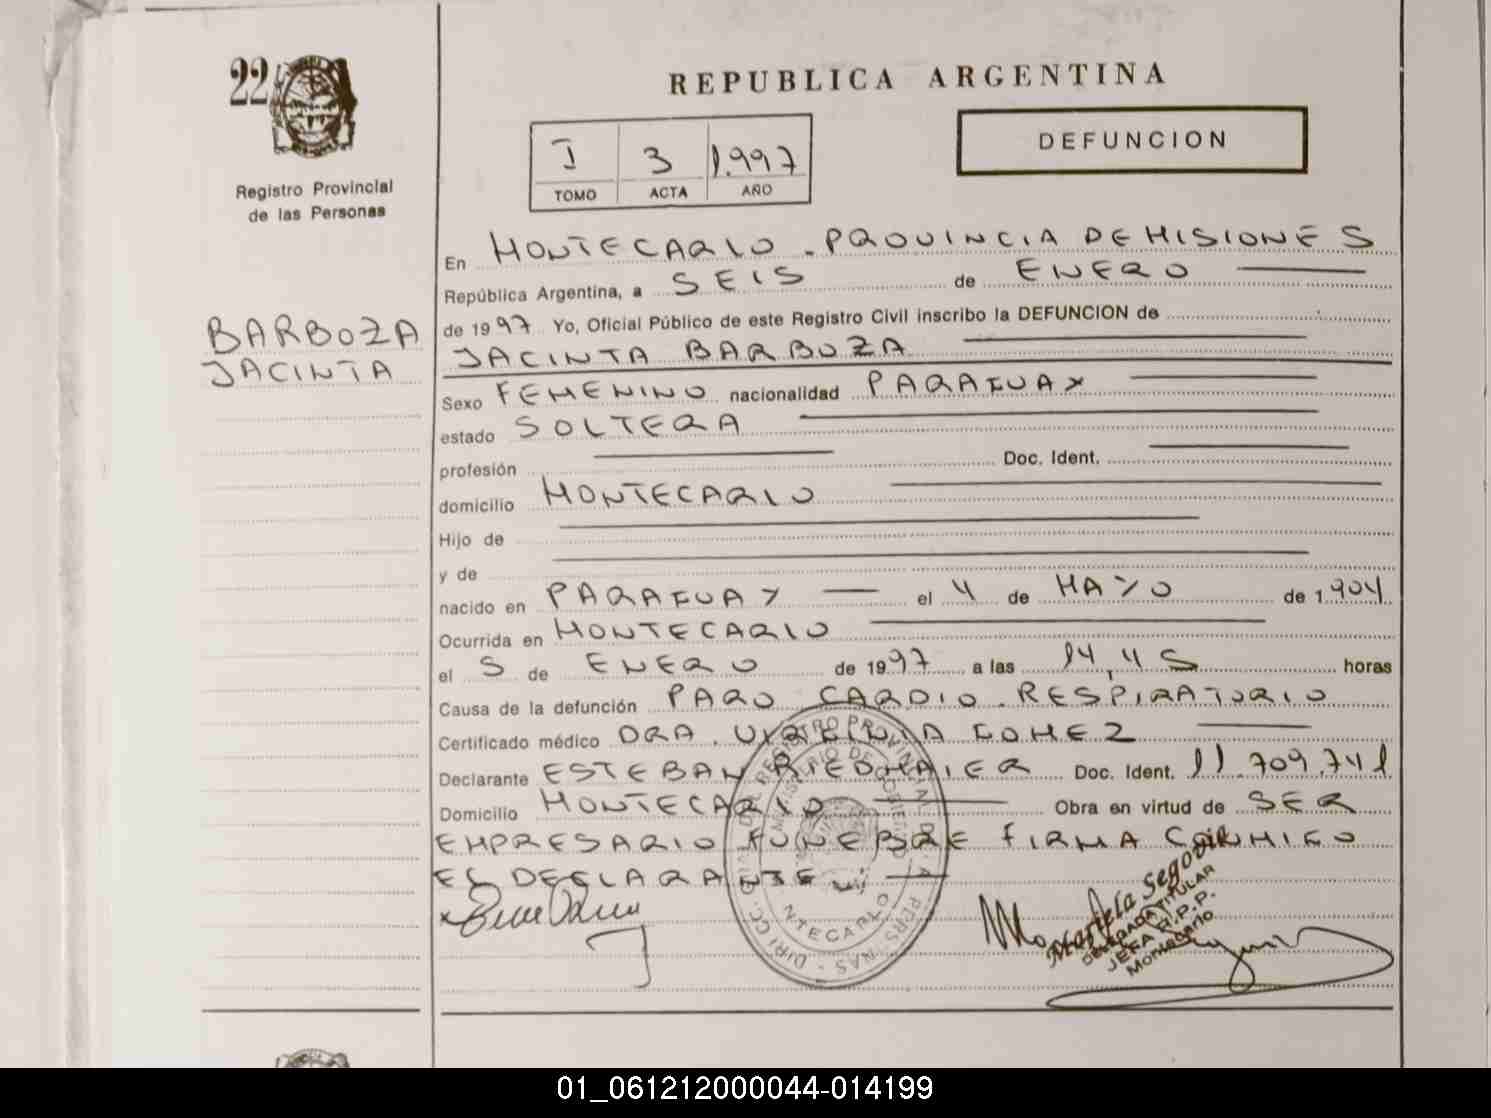 22
Registro Provincial
de las Personas
REPUBLICA ARGENTINA
DEFUNCION
I 3 1.997
TOMO ACTA AÑO
BARBOZA
JACINTA
En MONTECARLO - PROVINCIA DE MISIONES
República Argentina, a SEIS de ENERO
de 1997 Yo, Oficial Público de este Registro Civil inscribo la DEFUNCION de
JACINTA BARBOZA
Sexo FEMENINO nacionalidad PARAGUAY
estado SOLTERA
profesión Doc. Ident.
domicilio MONTECARLO
Hijo de
y de
nacido en PARAGUAY el 4 de MAYO de 1.904
Ocurrida en MONTECARLO
el 5 de ENERO de 1997 a las 14,45 horas
Causa de la defunción PARO CARDIO RESPIRATORIO
Certificado médico DRA. VIRGINIA GOMEZ
Declarante ESTEBAN RIEDMAIER Doc. Ident. 11.709.741
Domicilio MONTECARLO Obra en virtud de SER
EMPRESARIO FUNEBRE FIRMA CONMIGO
EL DECLARANTE.
Segovia
DELEGADA TITULAR
JEFA R.P.P.
Montecarlo
01_061212000044-014199